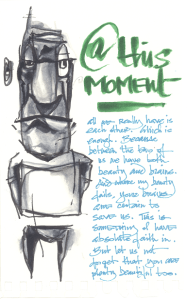 @ this
MOMENT
All we really have is
each other. Which is
enough. Because
between the two of
us we have both
beauty and brains.
And where my beauty
fails, your brains
are certain to
save us. This is
something I have
absolute faith in.
But let us not
forget that you are
plenty beautiful too.